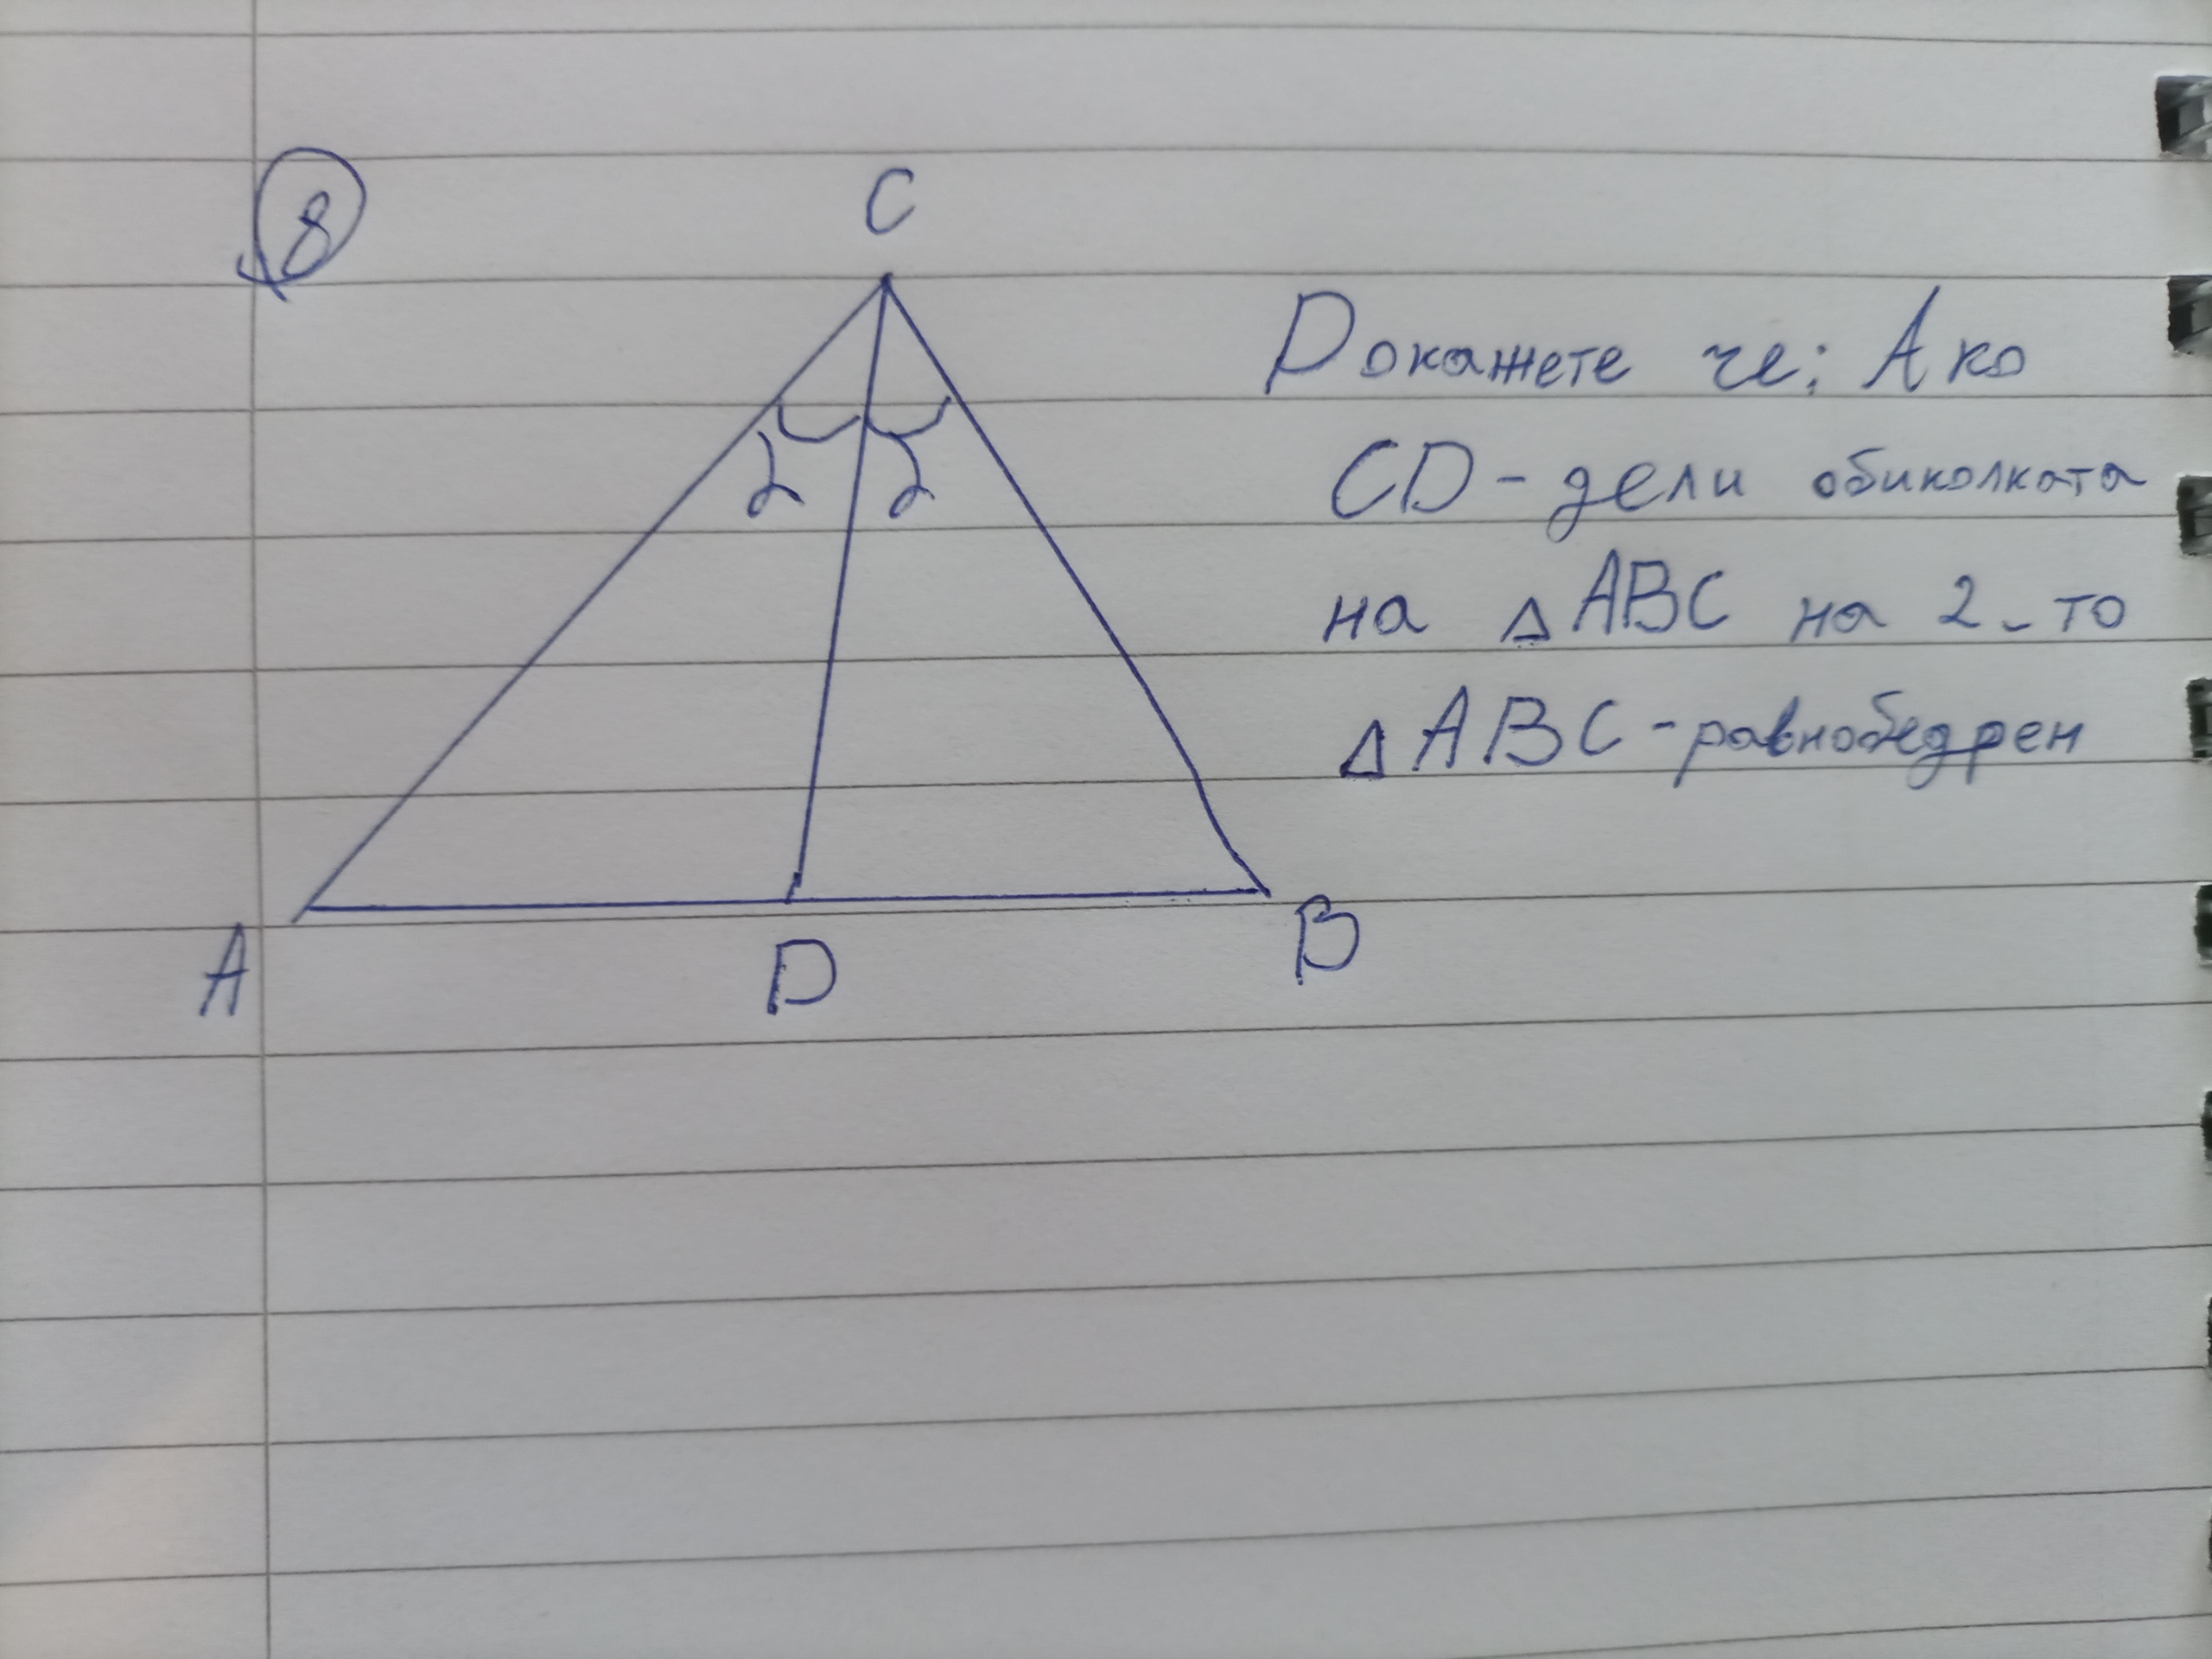 8
C
Докажете че: Ако
α α
CD - дели обиколката
на △ABC на 2-то
△ABC - равнобедрен
A D B